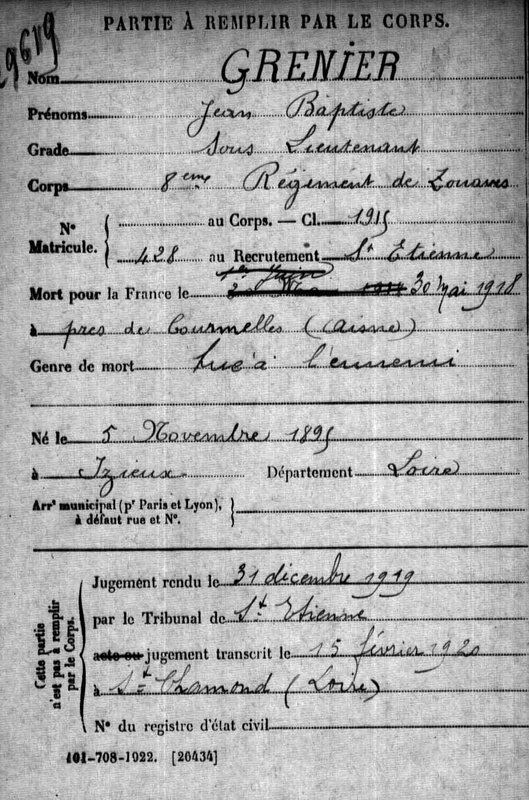 PARTIE À REMPLIR PAR LE CORPS.
29619
Nom GRENIER
Prénoms Jean Baptiste
Grade Sous Lieutenant
Corps 8eme Régiment de Zouaves
N° Matricule. { au Corps. — Cl. 1915
428 au Recrutement St Etienne
1er Juin
Mort pour la France le 30 Mai 1918
à près de Courmelles (Aisne)
Genre de mort tué à l'ennemi
Né le 5 Novembre 1895
à Izieux Département Loire
Arrt municipal (pr Paris et Lyon), à défaut rue et N°. }
Cette partie n'est pas à remplir par le Corps. {
Jugement rendu le 31 décembre 1919
par le Tribunal de St Etienne
acte ou jugement transcrit le 15 février 1920
à St Chamond (Loire)
N° du registre d'état civil
101-708-1922. [20434]